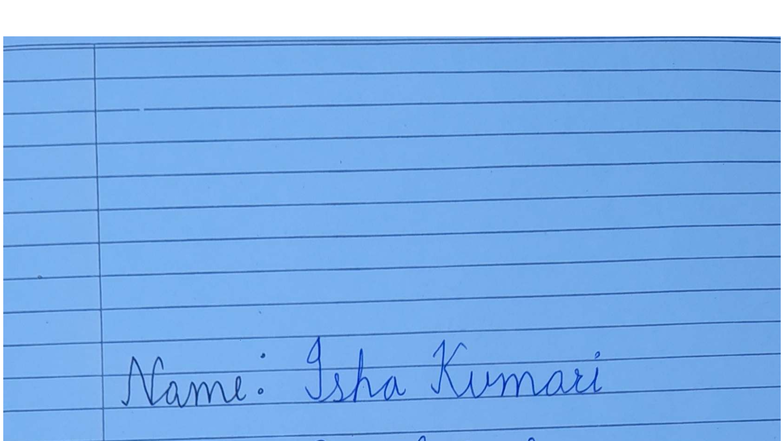 Name: Isha Kumari